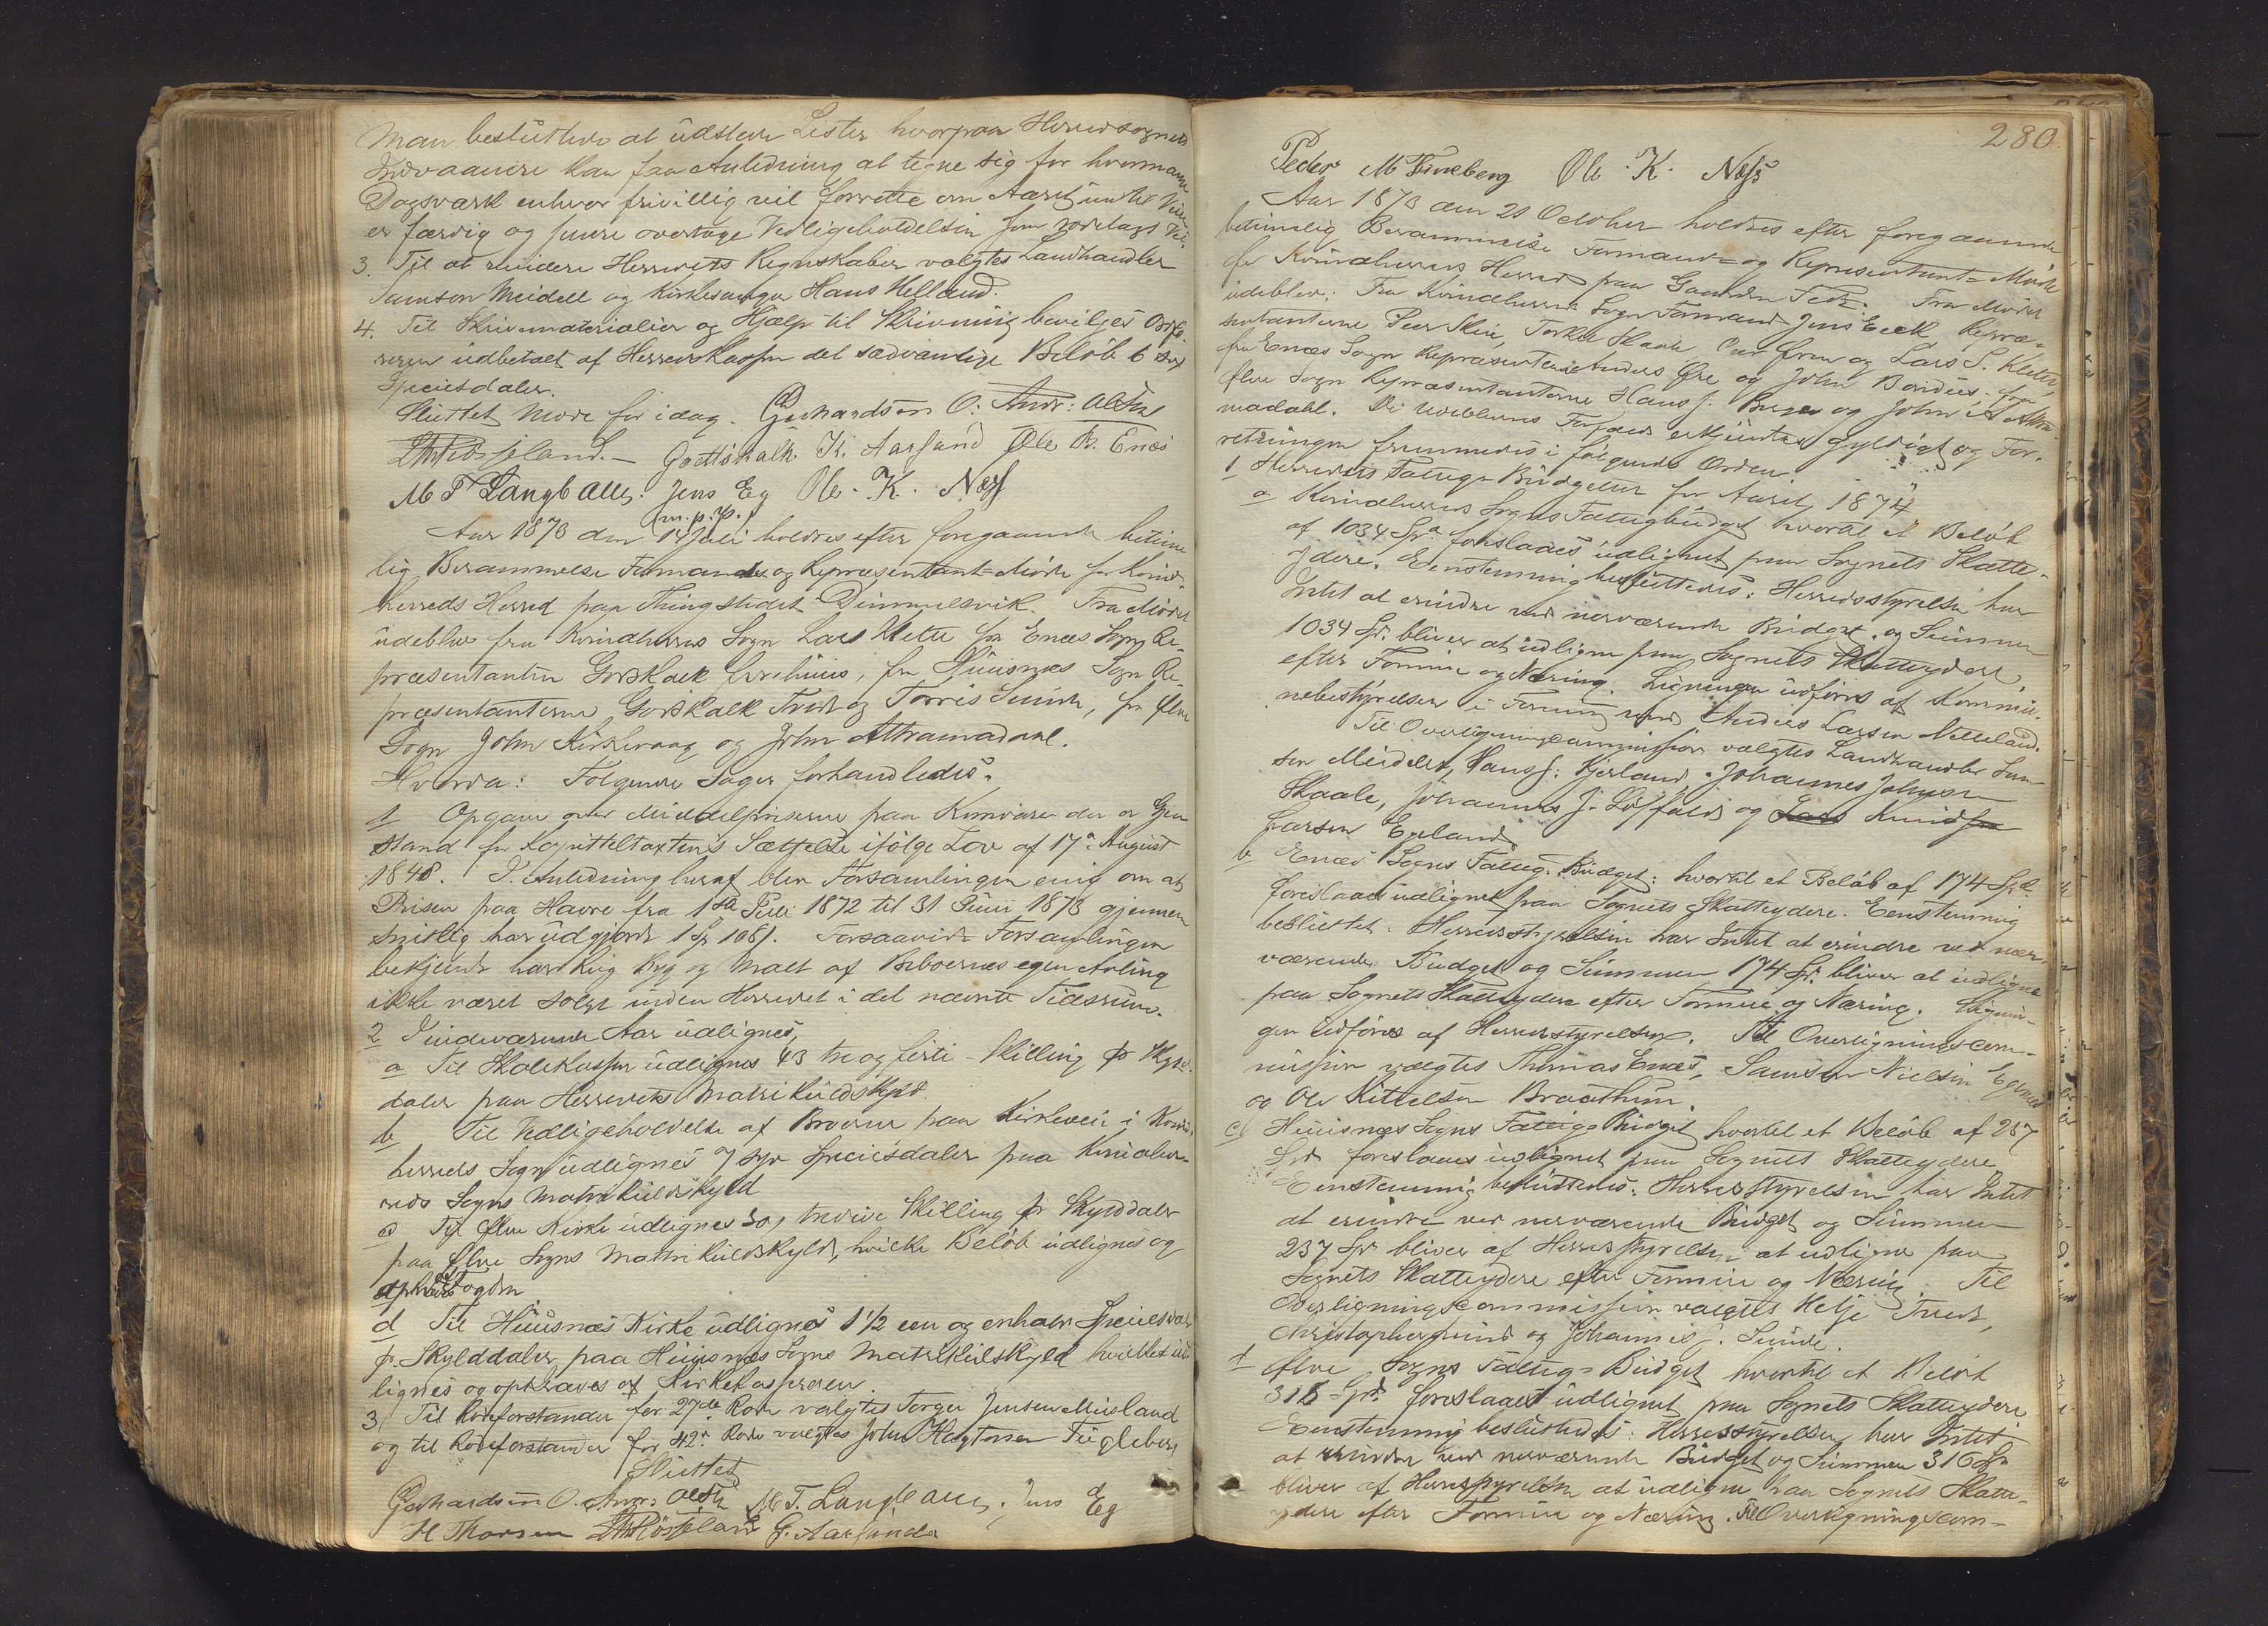 Man besluttede at udstede Lister hvorpaa Herredsognets
Indvaanere kan faa Anledning at tegne sig for hvormange
Dagsværk enhver frivillig vil forrette om Aaret indtil Veien
er færdig og senere overtage Vedligeholdelsen
3. Til at revidere Herredets Regnskaber valgtes Landhandler
Samson Meidell og Kirkesanger Hans Helland.
4. Til Skrivematerialier og Hjælp til Skrivning bevilges Ordfø-
reren udbetalt af Herredskassen det sædvanlige Beløb 6 sex
Speciesdaler.
Sluttet Møde for idag. Gerhardson O: Andr: Olsen
Gottskalk K. Aarsand Ole B. Enæs
M T Langballe. Jens Eg Ole. K. Næss
(m. p. P.)
Aar 1873 den 14 Juli holdtes efter foregaaende betime
lig Berammelse Formands og Repræsentant-Møde for Kvind-
herreds Herred paa Thingstedet Dimmelsvik. Fra Mødet
udeblev fra Kvindherreds Sogn Lars Klette fra Enæs Sogn Re-
præsentanten Godskalk, fra Huusnæs Sogn Re-
præsentanterne Godskalk Tvedt og Torris Sunde, fra Ølve
Sogn John Kirkevaag og John Attramadal.
Hvorda: Følgende Sager forhandledes.
1 Opgave over Middelpriserne paa Kornvarer der er Gjen
stand for Kapitteltaxtens Sættelse ifølge Lov af 17de August
1848. I Anledning heraf blev Forsamlingen enig om at
Prisen paa Havre fra 1ste Juli 1872 til 31 Juni 1873 gjennem
snitlig har udgjort 1 Spd 108 s. Forsaavidt Forsamlingen
bekjendt har Rug Byg og Malt af Beboernes egen Avling
ikke været solgt inden Herredet i det nævnte Tidsrum.
2 I indeværende Aar udlignes,
a Til Skolekassen udlignes 43 tre og firti Skilling pr Skyld-
daler paa Herredets Matrikulskyld.
b Til Vedligeholdelse af Broerne paa Kirkevei i Kvind-
herreds Sogn udlignes 7 syv Speciesdaler paa Kvindher-
reds Sogns Matrikulskyld
c Til Ølve Kirke udlignes 30, tredive Skilling pr Skylddaler
paa Ølve Sogns Matrikulskyld, hvilke Beløb udlignes og
opkræves af Fogden
d Til Huusnæs Kirke udlignes 1 1/2 een og enhalv Speciesdaler
pr Skylddaler paa Huusnæs Sogns Matrikulskyld hvilket ud-
lignes og opkræves af Kirkekassereren.
3 Til Rodeforstander for 27de Rode valgtes Torger Jensen Musland
og til Rodeforstander for 42de Rode valgtes John Hagtorsen Fugleberg
Sluttet
Gerhardson O. Andr: Olsen M T. Langballe, Jens Eg
H Thorsen G. Aarsande
280
Peder M Fureberg Ole K. Næss
Aar 1873 den 21 October holdtes efter foregaaende
betimelig Berammelse Formands- og Repræsentant-Møde
for Kvindherreds Herred paa Gaarden Fet. Fra Mødet
udeblev: Fra Kvindherreds Sogn Formand Jens Eeck Repræ-
sentanterne Peer Skeie, Torkel Skaale, og Lars S. Klette,
fra Enæs Sogn Repræsentant Anders Øie og John Bondes- fra
Ølve Sogn Repræsentanterne Hans J. og John A Attra-
madahl. De Udeblevnes Forfald erkjendtes gyldigt og For-
retningen fremmedes i følgende Orden
1 Herredets Fattig-Budgetter for Aaret 1874
a Kvindherreds Sogns Fattigbudget hvortil et Beløb
af 1034 Spd foreslaaes udlignet paa Sognets Skatte-
ydere. Eenstemmig besluttedes: Herredsstyrelsen har
Intet at erindre ved nærværende Budget, og Summen
1034 Spd bliver at udligne paa Sognets Skatteydere
efter Formue og Næring. Ligningen udføres af Kommu-
nebestyrelsen i Forening med Anders Larsen Netteland.
Til Overligningscommission valgtes Landhandler Sam-
son Meidell, Hans J: Kjerland, Johannes Johnsen
Skaale, Johannes J. Løffald og Knud
Larsen Egeland
b Enæs Sogns Fattig-Budget: hvortil et Beløb af 174 Spd
foreslaaes udlignet paa Sognets Skatteydere. Eenstemmig
besluttet. Herredsstyrelsen har Intet at erindre ved nær-
værende Budget og Summen 174 Spd bliver at udligne
paa Sognets Skatteydere efter Formue og Næring. Lignin-
gen udføres af Herredsstyrelsen. Til Overligningscom-
mission valgtes Thomas Enæs, Samson Nielsen
og Ole Kittelsen Braathun
c) Huusnæs Sogns Fattigs Budget hvortil et Beløb af 237
Spd foreslaaes udlignet paa Sognets Skatteydere
Eenstemmig besluttedes: Herredsstyrelsen har Intet
at erindre ved nærværende Budget og Summen
237 Spd bliver af Herredsstyrelsen at udligne paa
Sognets Skatteydere efter Formue og Næring. Til
Overligningscommission valgtes Helje Tvedt,
Christopher Sund og Johannes J. Sunde.
d Ølve Sogns Fattig-Budget hvortil et Beløb
316 Spd. foreslaaes udlignet paa Sognets Skatteydere
Eenstemmig besluttedes: Herredsstyrelsen har Intet
at erindre ved nærværende Budget og Summen 316 Spd
bliver af Herredsstyrelsen at udligne paa Sognets Skatte-
ydere efter Formue og Næring. Til Overligningscom-